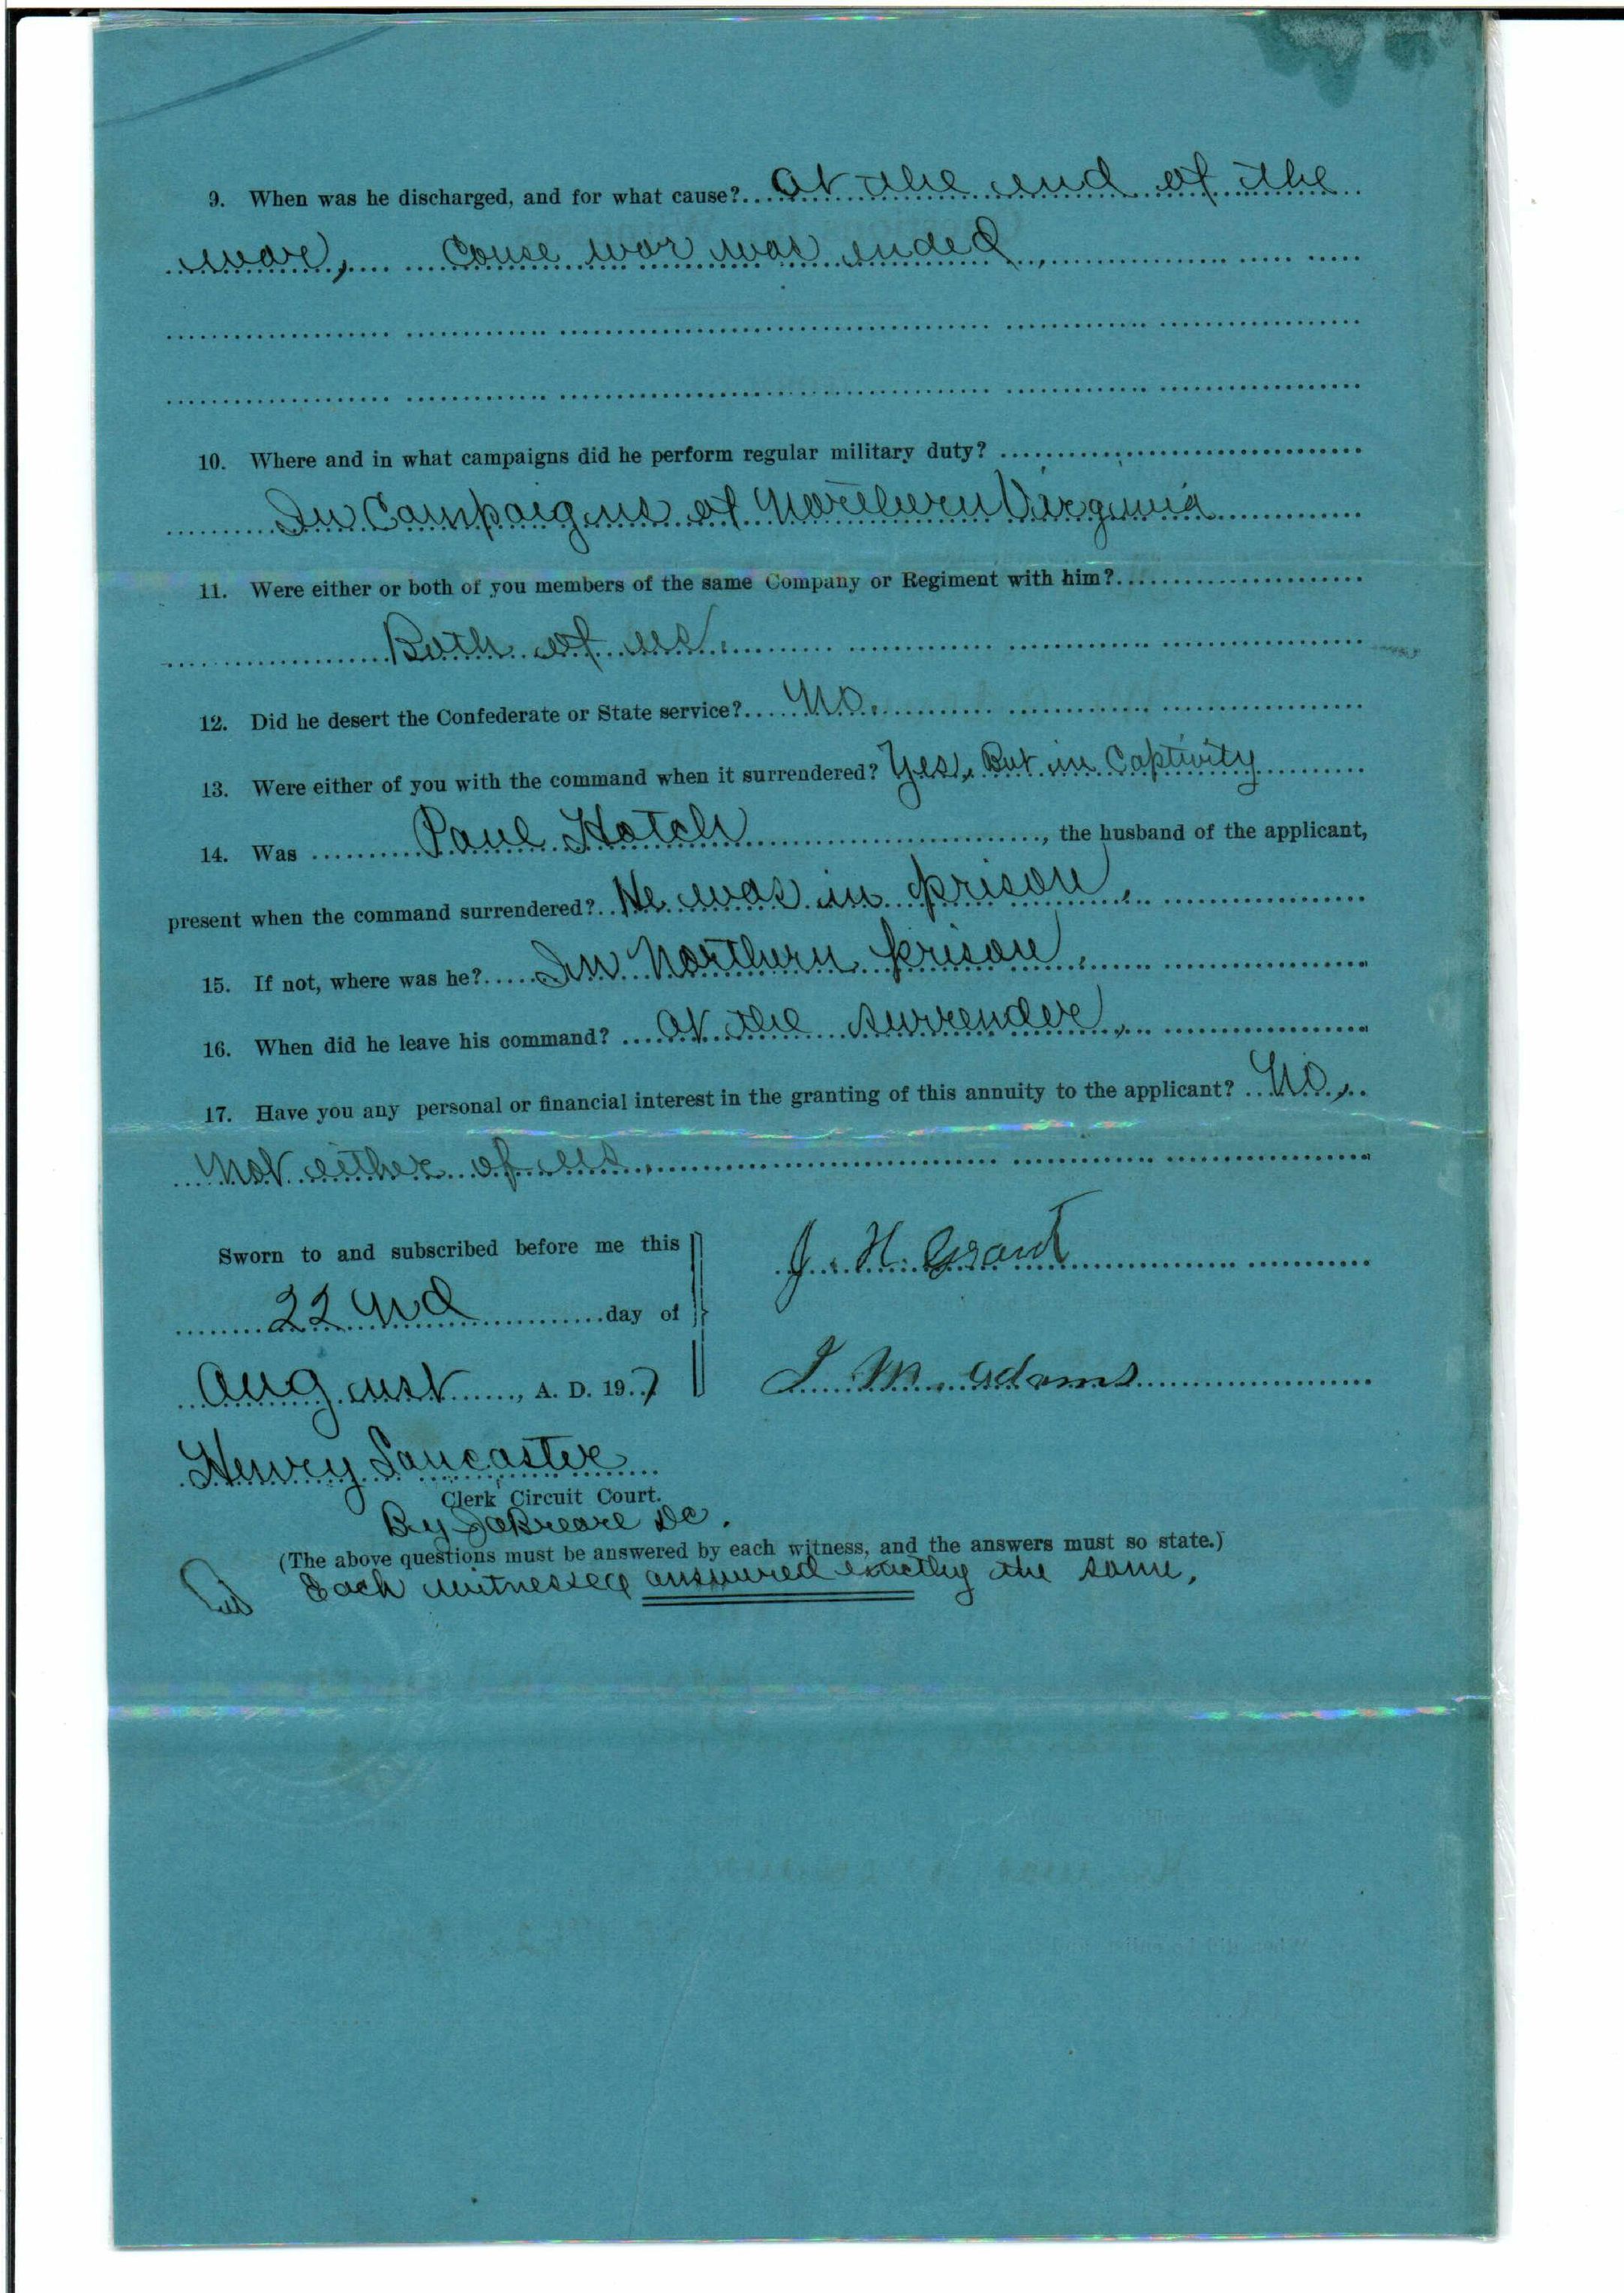 9. When was he discharged, and for what cause? At the end of the
war, Cause war was ended.
10. Where and in what campaigns did he perform regular military duty?
In Campaigns of Northern Virginia
11. Were either or both of you members of the same Company or Regiment with him?
Both of us.
12. Did he desert the Confederate or State service? No.
13. Were either of you with the command when it surrendered? Yes, But in Captivity
14. Was Paul Hatch, the husband of the applicant,
present when the command surrendered? He was in prison.
15. If not, where was he? In Northern prison.
16. When did he leave his command? At the surrender,
17. Have you any personal or financial interest in the granting of this annuity to the applicant? No,
Not either of us.
Sworn to and subscribed before me this
J. H. Grant
22nd day of
August, A. D. 197
J M. Adams
Henry Lancaster
Clerk Circuit Court.
By DC.
(The above questions must be answered by each witness, and the answers must so state.)
Each witnessed answered exactly the same.